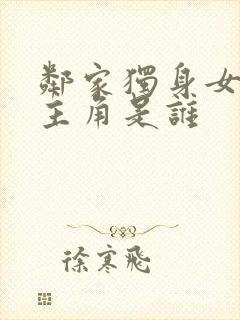 鄰家獨身女
主角是誰
徐寒飛